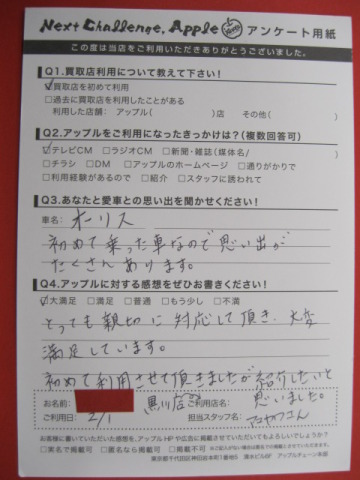 Next Challenge, Apple アンケート用紙
この度は当店をご利用いただきありがとうございました。
Q1.買取店利用について教えて下さい!
☑買取店を初めて利用
□過去に買取店を利用したことがある
利用した店舗: アップル( )店 その他( )
Q2.アップルをご利用になったきっかけは?(複数回答可)
☑テレビCM □ラジオCM □新聞・雑誌(媒体名/ )
□チラシ □DM □アップルのホームページ □通りがかりで
□利用経験があるので □紹介 □スタッフに誘われて
Q3.あなたと愛車との思い出を聞かせください!
車名: オーリス
初めて乗った車なので思い出が
たくさんあります。
Q4.アップルに対する感想をぜひお書きください!
☑大満足 □満足 □普通 □もう少し □不満
とっても親切に対応して頂き、大変
満足しています。
初めて利用させて頂きましたが紹介したいと
思いました。
お名前: ご利用店名: 黒川店
ご利用日: 2/1 担当スタッフ名:
お客様に書いていただいた感想を、アップルHPや広告に掲載させていただいてもよろしいでしょうか?
□実名で掲載可 □匿名なら掲載可 □掲載不可
東京都千代田区神田松本町1番地5 清水ビル6F アップルチェーン本部